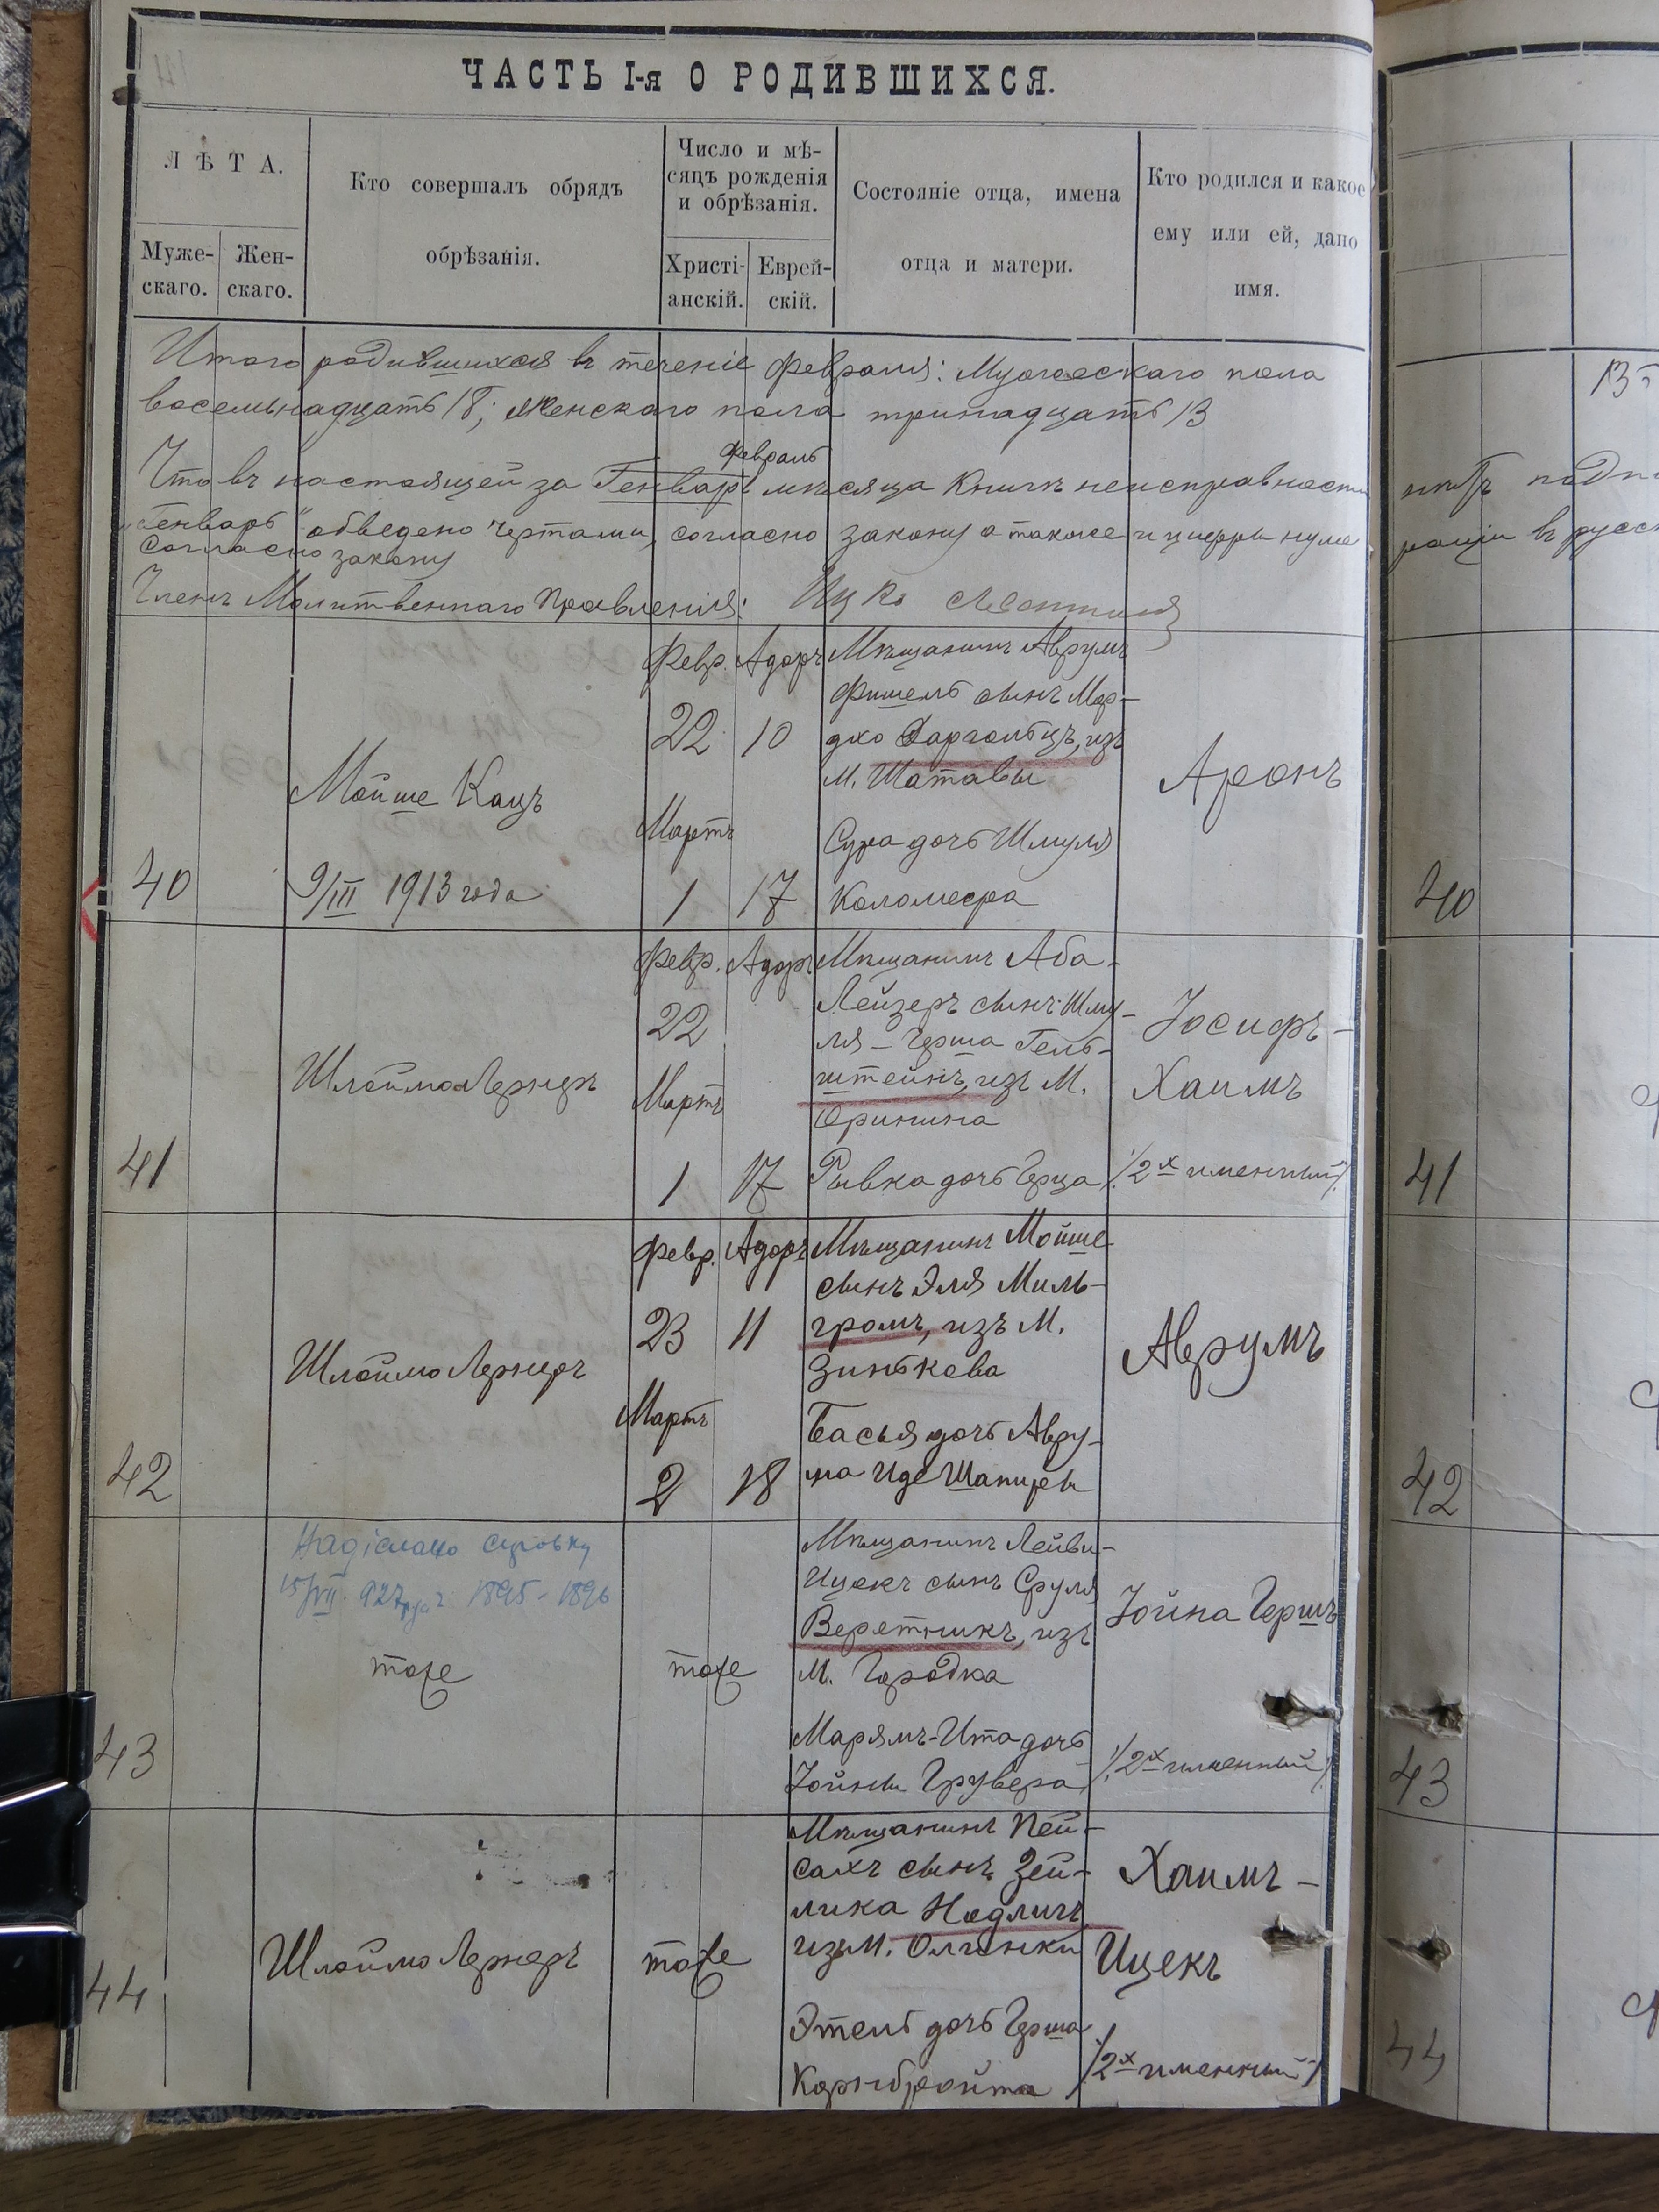 ЧАСТЬ I-я О РОДИВШИХСЯ.
ЛѢТА.
Муже-
скаго.
Жен-
скаго.
Кто совершалъ обрядъ
обрѣзанія.
Число и мѣ-
сяцъ рожденія
и обрѣзанія.
Христі-
анскій.
Еврей-
скій.
Состояніе отца, имена
отца и матери.
Кто родился и какое
ему или ей, дано
имя.
Итого родившихся въ теченіе февраля: Мужескаго пола
восемьнадцать 18, Женскаго пола тринадцать 13
февраль
Что въ настоящей за Генварь мѣсяца Книгѣ неисправности
"Генварь" обведено чертами, согласно закону а также и цифры нуме
согласно закону
Членъ Молитвеннаго Правленія: Ицко
40
Мойше Кацъ
9/III 1913 года
Февр. Адоръ
22 10
Мартъ
1 17
Мѣщанинъ Аврумъ
Фишель сынъ Мор-
дко Гаргольцъ, изъ
м. Шатавы
Сура дочь Шмуля
Коломеера
Аронъ
41
Шлоймо Лернеръ
Февр. Адоръ
22
Мартъ
1 17
Мѣщанинъ Аба-
Лейзеръ сынъ Шму-
ля-Герша Гель-
штейнъ, изъ М.
Оринина
Рывка дочь Герца
Іосифъ-
Хаимъ
/2х именный/
42
Шлоймо Лернеръ
Февр. Адоръ
23 11
Мартъ
2 18
Мѣщанинъ Мойше
сынъ Эля Миль-
громъ, изъ М.
Зинькова
Басья дочь Авру-
ма Иде Шапиры
Аврумъ
43
Надіслано
1895-1896
тоже
тоже
Мѣщанинъ Лейви-
Ицекъ сынъ Сруля
Веретникъ, изъ
М. Городка
Марямъ-Ита дочь
Іойны Грувера
Іойна Гершъ
/2х именный/
44
Шлоймо Лернеръ
тоже
Мѣщанинъ Пей-
сахъ сынъ Зей-
лика Недличъ
изъ м.
Этель дочь Герша
Корнбройта
Хаимъ-
Ицекъ
/2х именный/
13
40
41
42
43
44